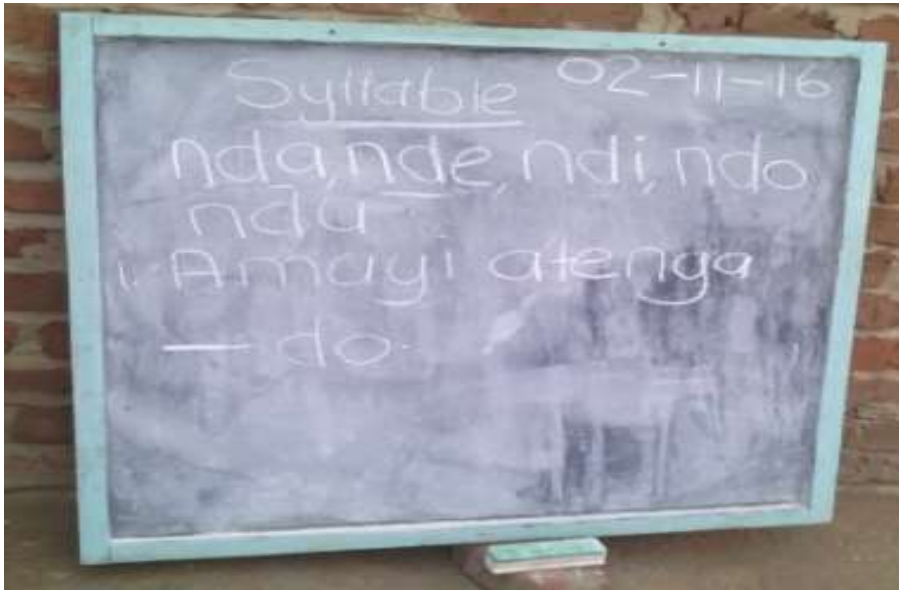 Syllable 02-11-16
nda, nde, ndi, ndo
ndu
1. Amayi atenga
— do.